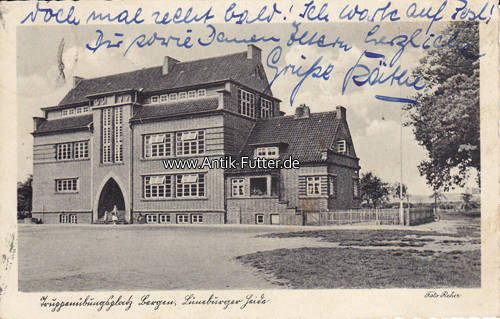 doch mal recht bald! Ich warte auf Post!
Du sowie Deinen Eltern herzliche
Grüße Käthe
www.Antik-Futter.de
Truppenübungsplatz Bergen, Lüneburger Heide
Foto Reher